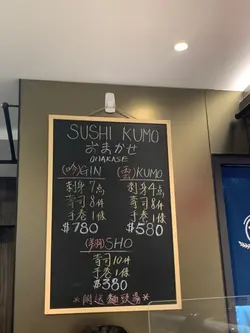 SUSHI KUMO
おまかせ
OMAKASE
(吟)GIN
刺身7点
寿司8件
手卷1條
$780
(雲)KUMO
刺身4点
寿司8件
手卷1條
$580
SHO
寿司10件
手卷1條
$380
*附送麵豉湯*